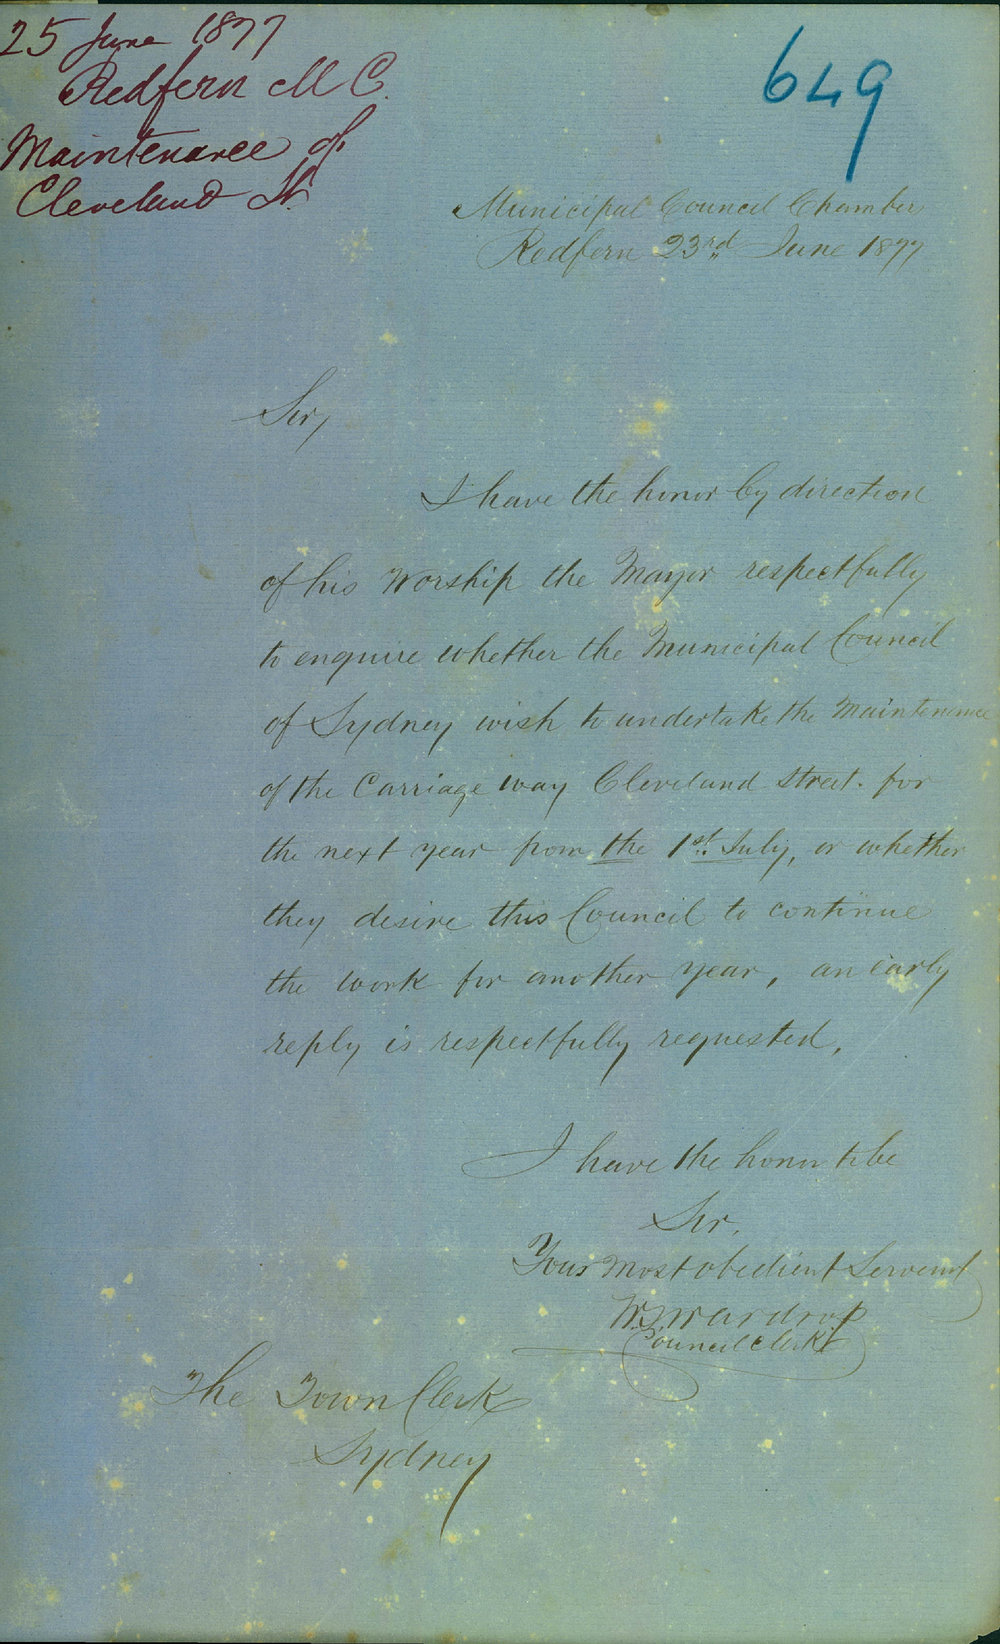 25 June 1877
Redfern M C.
Maintenance of
Cleveland St.
649
Municipal Council Chamber
Redfern 23rd June 1877
Sir,
I have the honor by direction
of his Worship the Mayor respectfully
to enquire whether the Municipal Council
of Sydney wish to undertake the Maintenance
of the Carriage way Cleveland Street. for
the next year from the 1st July, or whether
they desire this Council to continue
the work for another year, an early
reply is respectfully requested.
I have the honor to be
Sir,
Your most obedient Servant
Wardrop
Council Clerk
The Town Clerk
Sydney